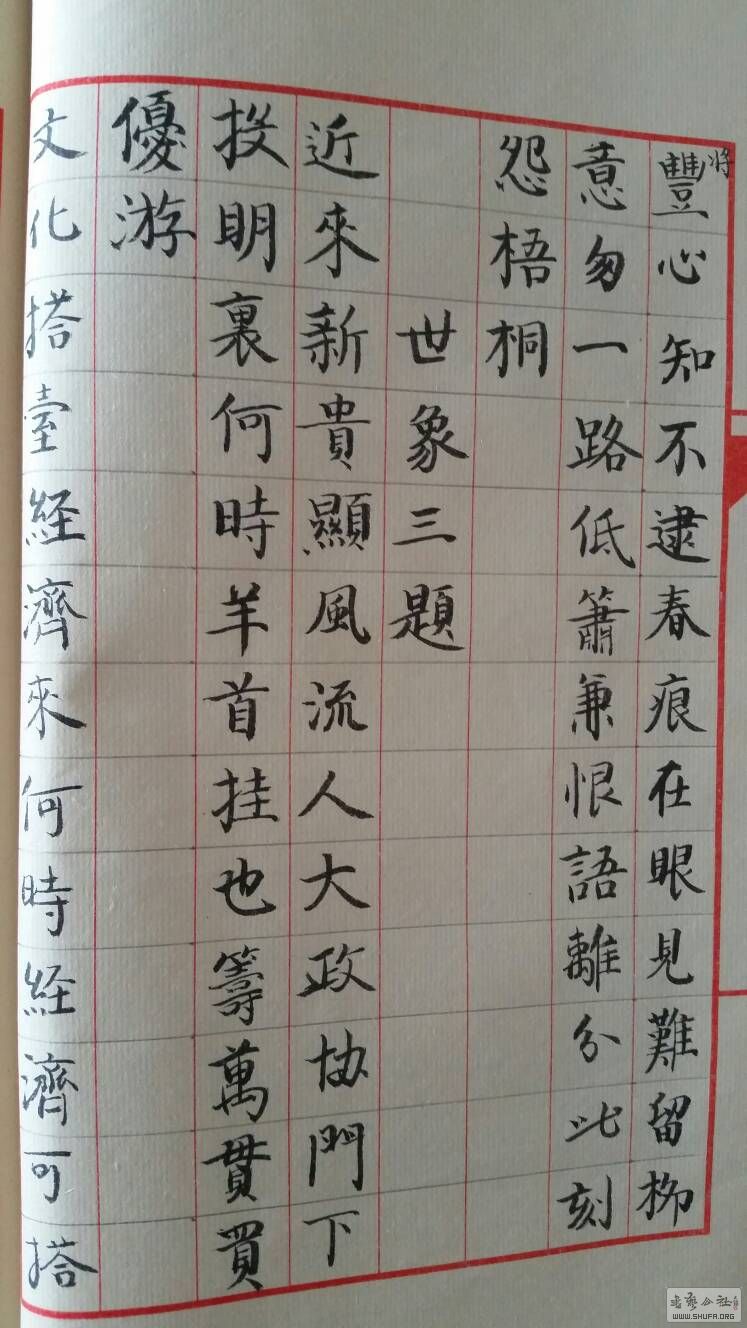 豐將心知不逮春痕在眼見難留柳
意匆一路低簫兼恨語離分此刻
怨梧桐
世象三題
近來新貴顯風流人大政協門下
投明裏何時羊首挂也籌萬貫買
優游
文化搭臺経濟來何時経濟可搭
WWW.SHUFA.ORG